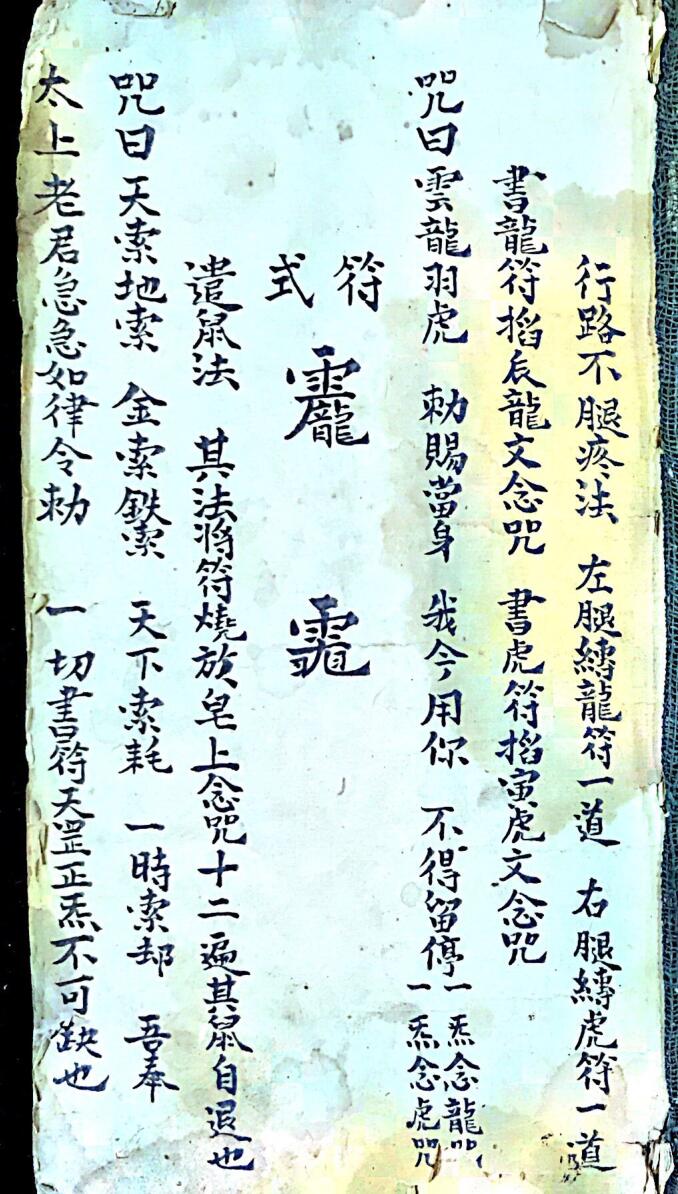 行路不腿疼法　左腿縛龍符一道　右腿縛虎符一道
書龍符搯辰龍文念咒　書虎符搯寅虎文念咒
咒曰雲龍羽虎　勅賜當身　我今用你　不得留停　一炁念龍咒　一炁念虎咒
符式
遣鼠法　其法將符燒放皂上念咒十二遍其鼠自退也
咒曰天索地索　金索鉄索　天下索耗　一時索却　吾奉
太上老君急急如律令勅　一切書符天罡正炁不可缺也